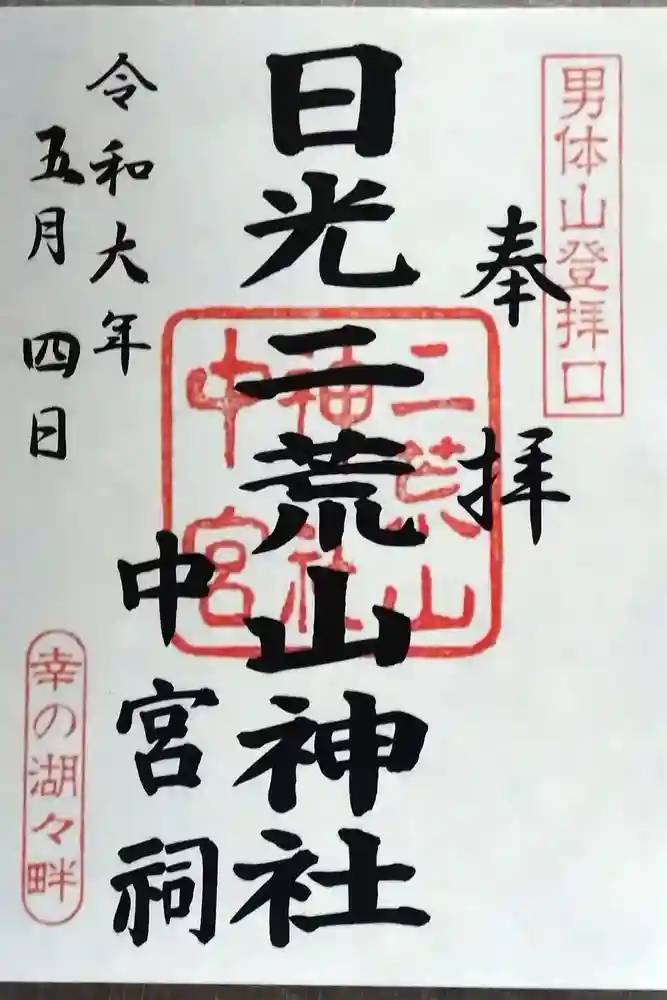 男体山登拝口
奉拝
日光二荒山神社
中宮祠
二荒山
神社
中宮
令和六年
五月四日
幸の湖々畔